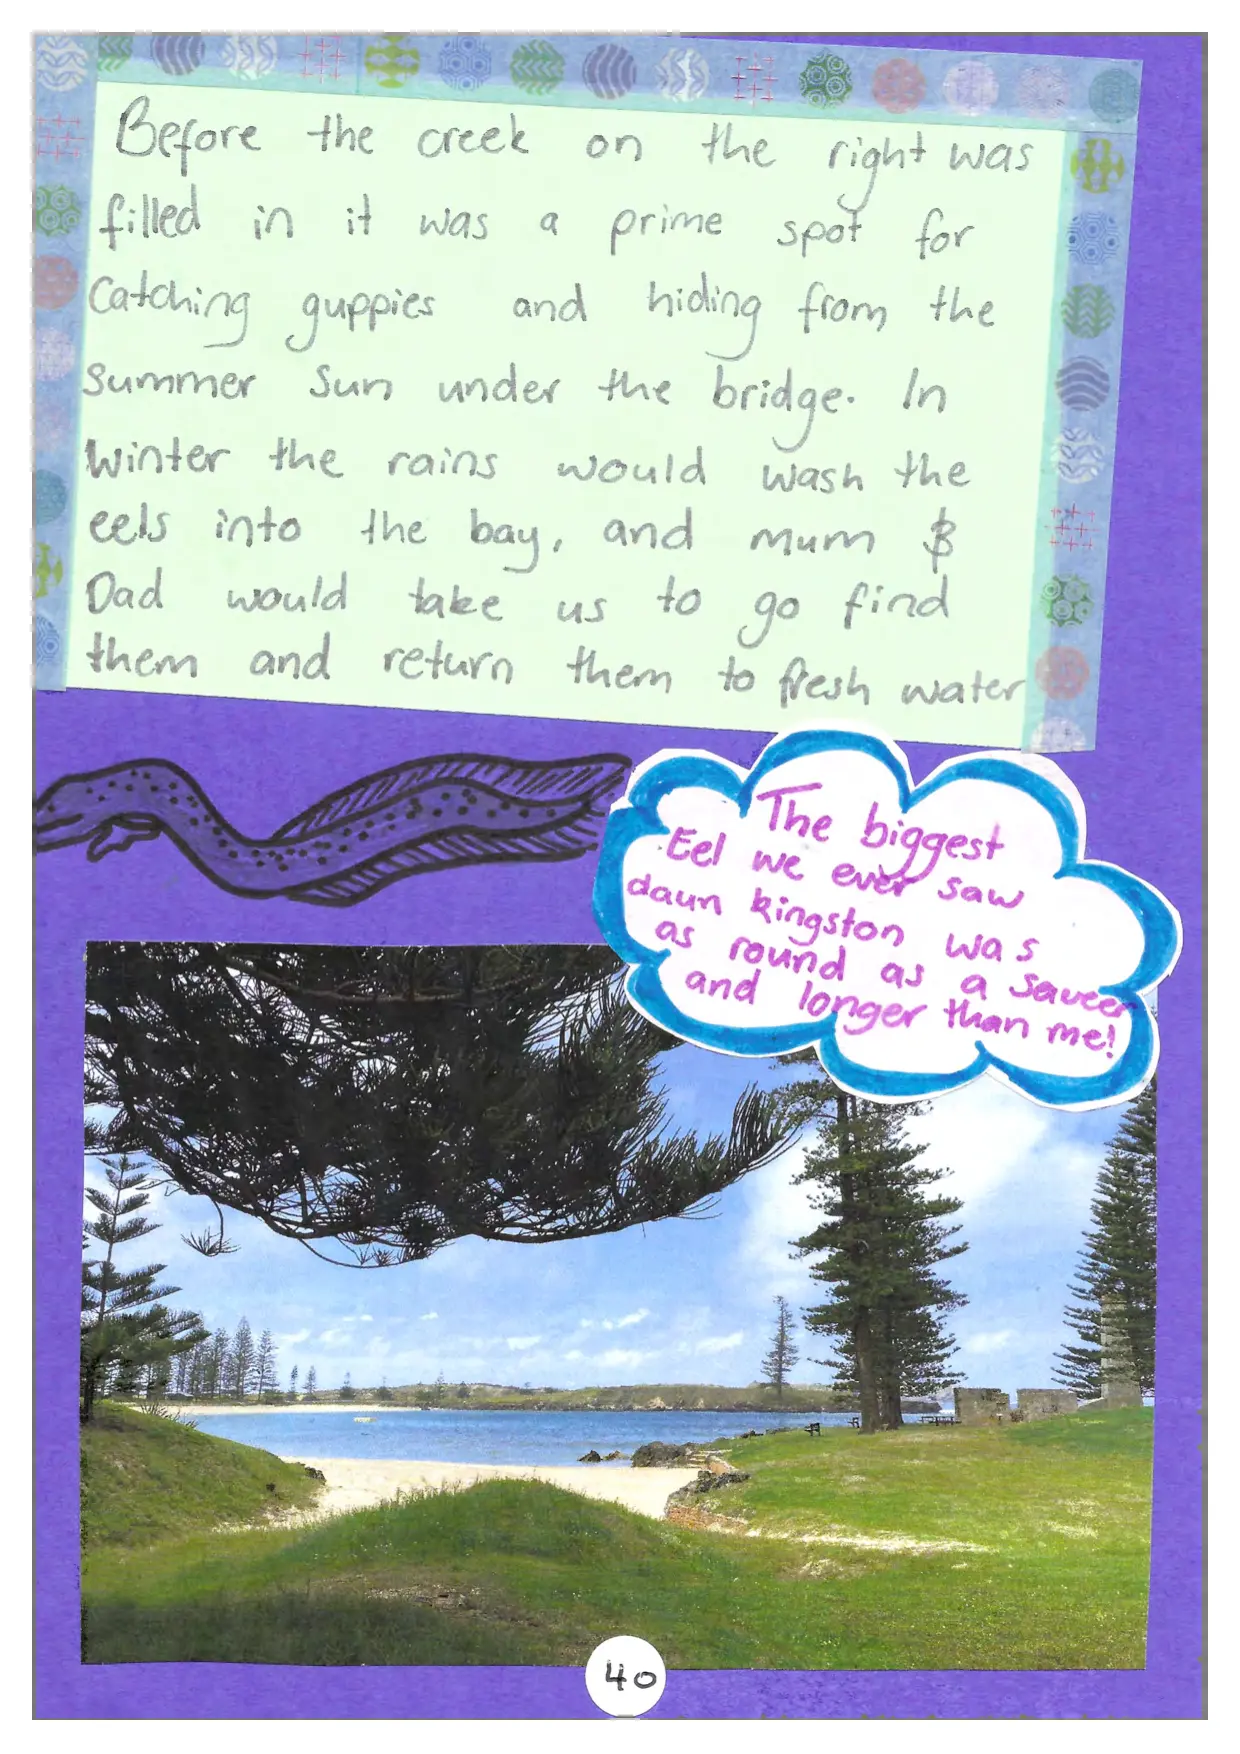 Before the creek on the right was
filled in it was a prime spot for
Catching guppies and hiding from the
Summer Sun under the bridge. In
Winter the rains would wash the
eels into the bay, and mum &
Dad would take us to go find
them and return them to fresh water
The biggest
Eel we ever saw
daun kingston was
as round as a saucer
and longer than me!
40